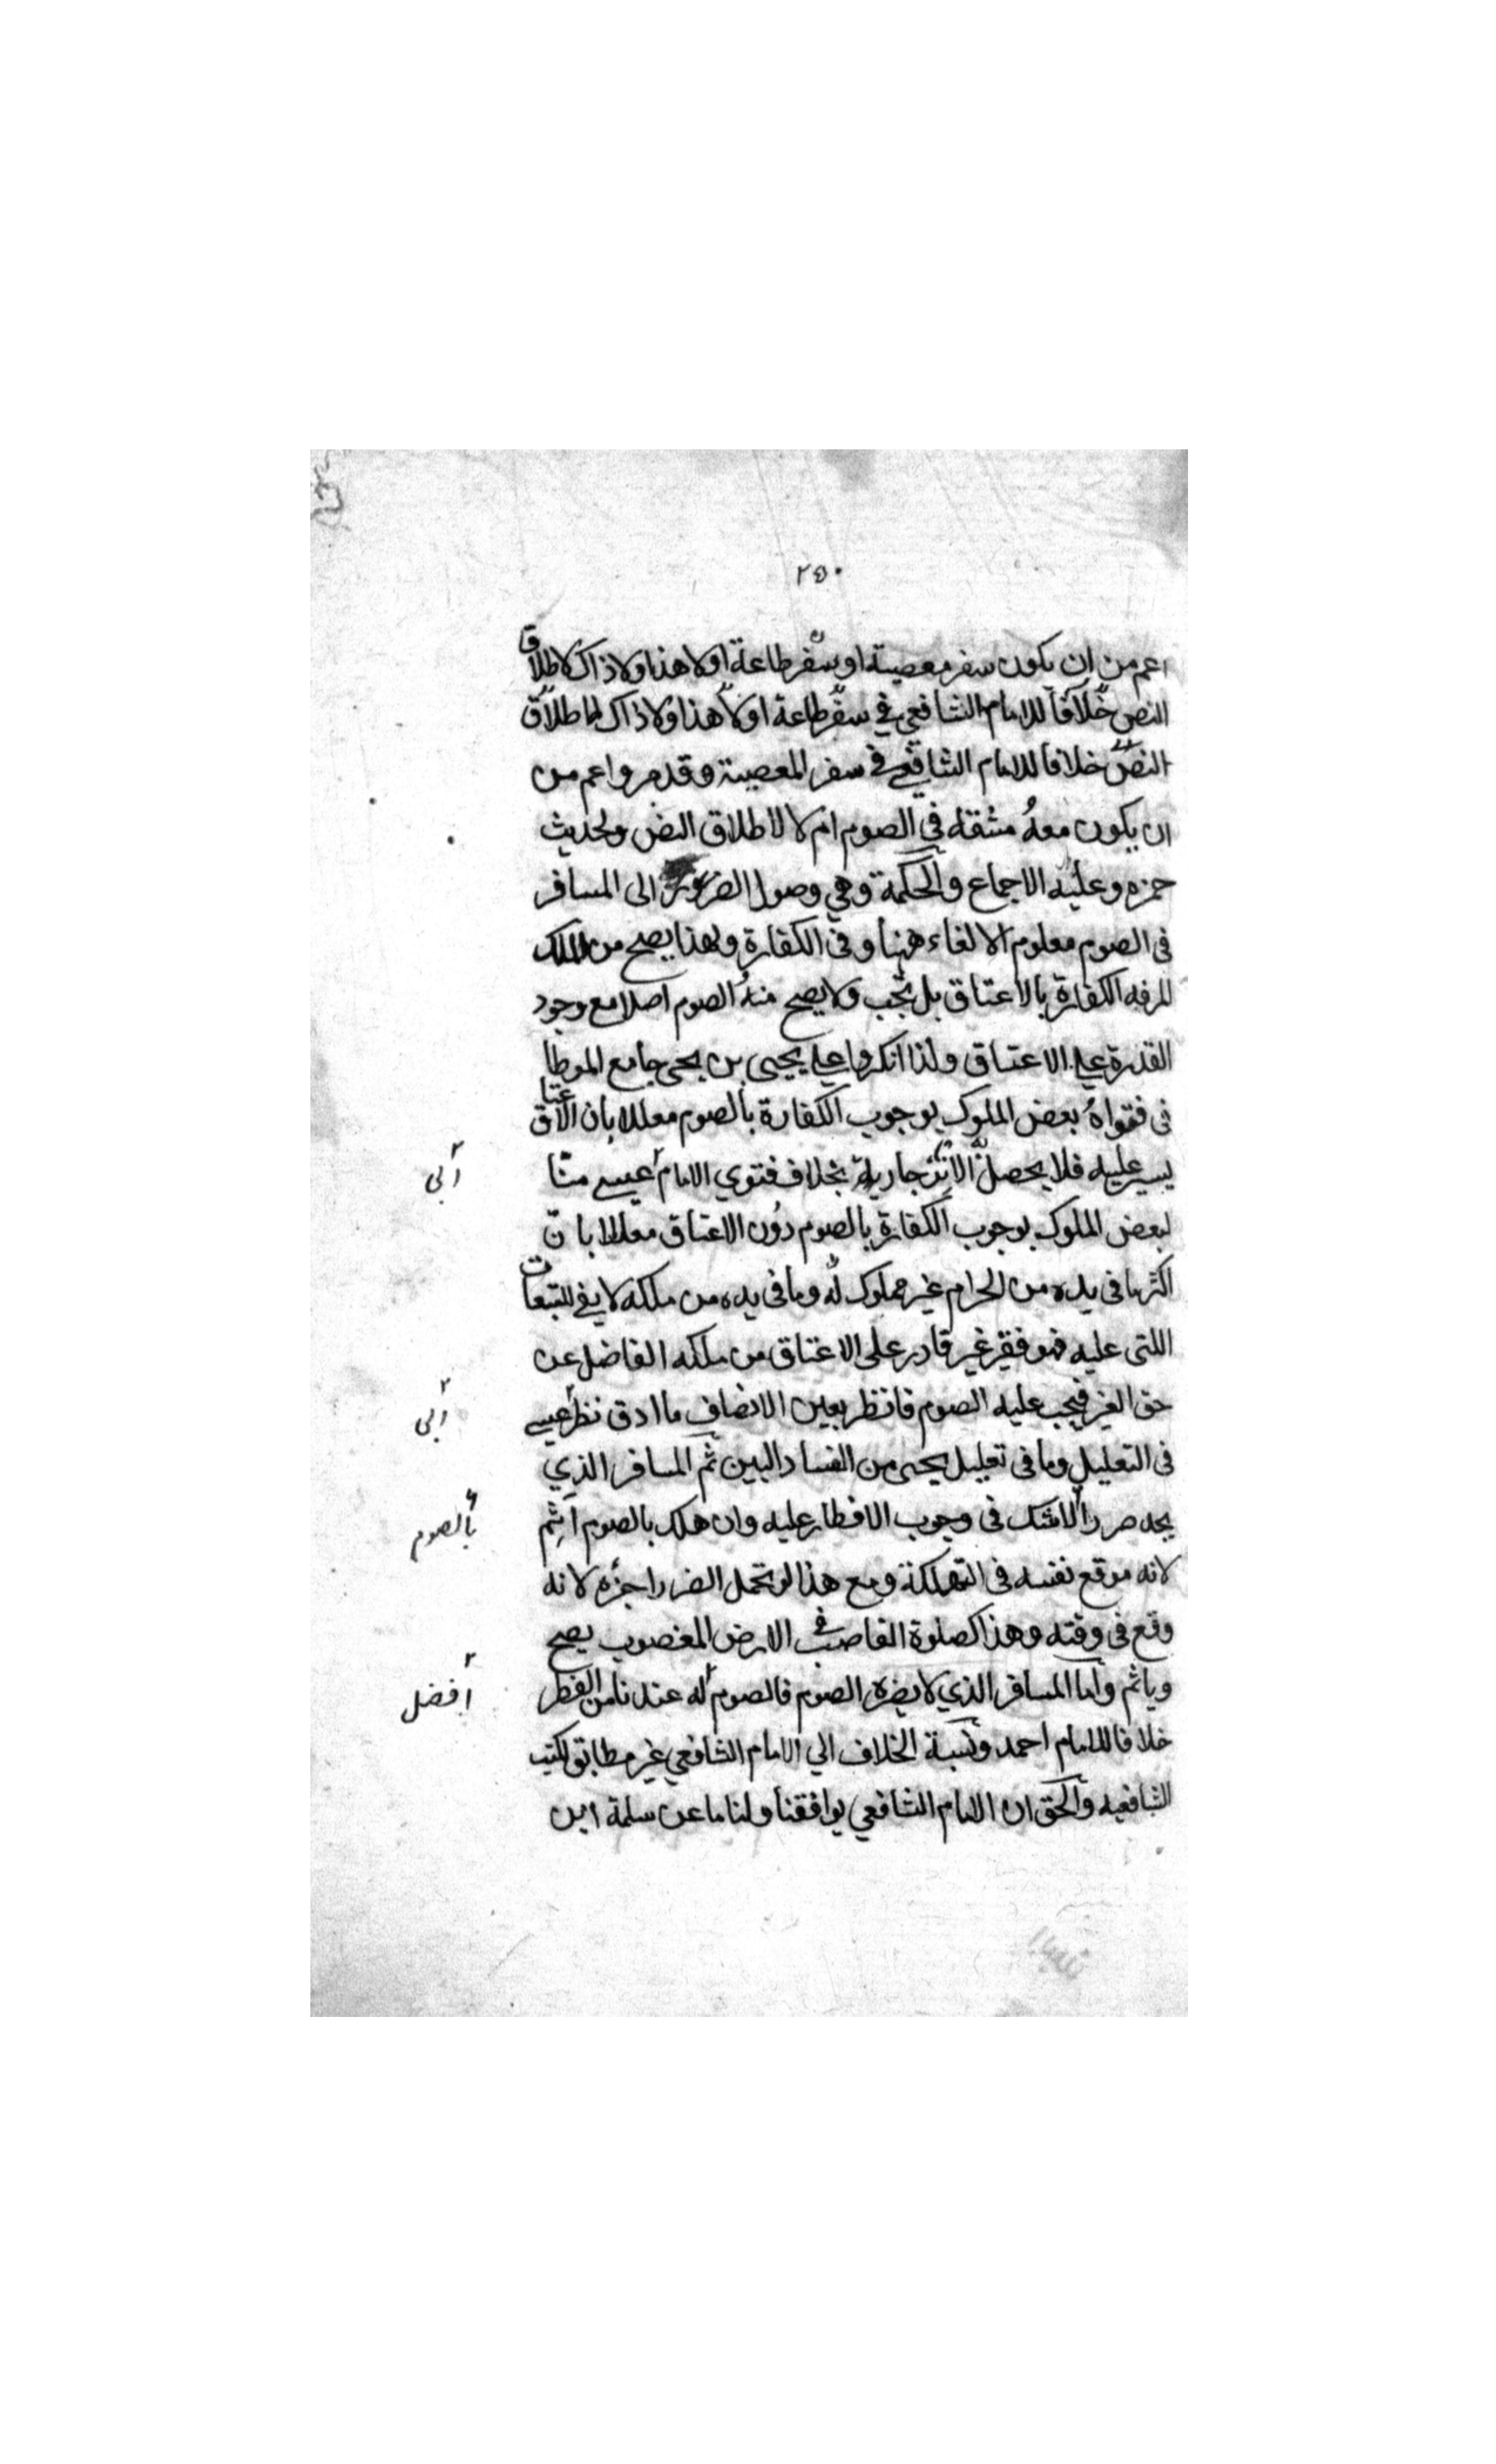 ٢٥٠
اعم من ان يكون سفر معصية او سفر طاعة او لا هذا ولا ذاك لاطلاق
النص خلافا للامام الشافعي في سفر طاعة او لا هذا ولا ذاك لاطلاق
النص خلافا للامام الشافعي في سفر المعصية وقد مر واعم من
ان يكون معه مشقة في الصوم ام لا لاطلاق النص ولحديث
حمزه وعليه الاجماع والحكمة وهي وصول الضرر الى المسافر
في الصوم معلوم الالغاء ههنا وفي الكفارة ولهذا يصح من الملك
المرفه الكفارة بالاعتاق بل تجب ولا يصح منه الصوم اصلا مع وجود
القدرة علي الاعتاق ولذا انكروا علي يحيى بن يحيى جامع الموطا
في فتواه بعض الملوك بوجوب الكفارة بالصوم معللا بان الاعتاق
يسير عليه فلا يحصل الانزجار به بخلاف فتوي الامام عيسى منا
ابى
لبعض الملوك بوجوب الكفارة بالصوم دون الاعتاق معللا بان
اكثر ما في يده من الحرام غير مملوك له وما في يده من ملكه لا يفي للتبعات
اللتى عليه فهو فقير غير قادر على الاعتاق من ملكه الفاضل عن
حق الغير فيجب عليه الصوم فانظر بعين الانصاف ما ادق نظر عيسى
ابى
في التعليل وما في تعليل يحيى من الفساد البين ثم المسافر الذي
يجد ضررا لا شك في وجوب الافطار عليه وان هلك بالصوم أثم
بالصوم
لانه موقع نفسه في التهلكة ومع هذا لو تحمل الضرر اجزه لانه
وقع في وقته وهذا كصلوة الغاصب في الارض المغصوب يصح
وياثم واما المسافر الذي لا يضره الصوم فالصوم له عندنا من الفطر
أفضل
خلافا للامام احمد ونسبة الخلاف الي الامام الشافعي غير مطابق لكتب
الشافعيه والحق ان الامام الشافعي يوافقنا ولنا ما عن سلمة ابن